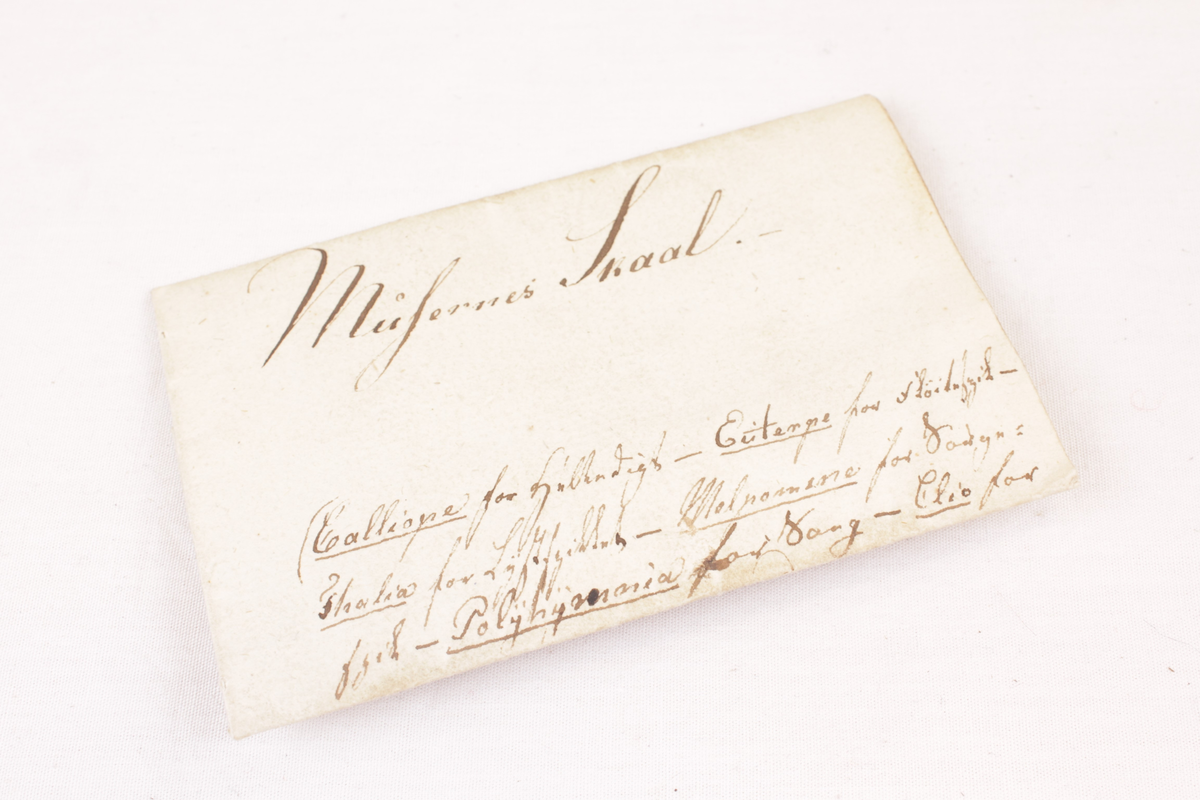 Musernes Skaal. –
(Calliope for Heltendigt – Euterpe for Fløitespil –
Thalia for Lystspillet – Melpomene for Sørge=
spil – Polyhymnia for Sang – Clio for